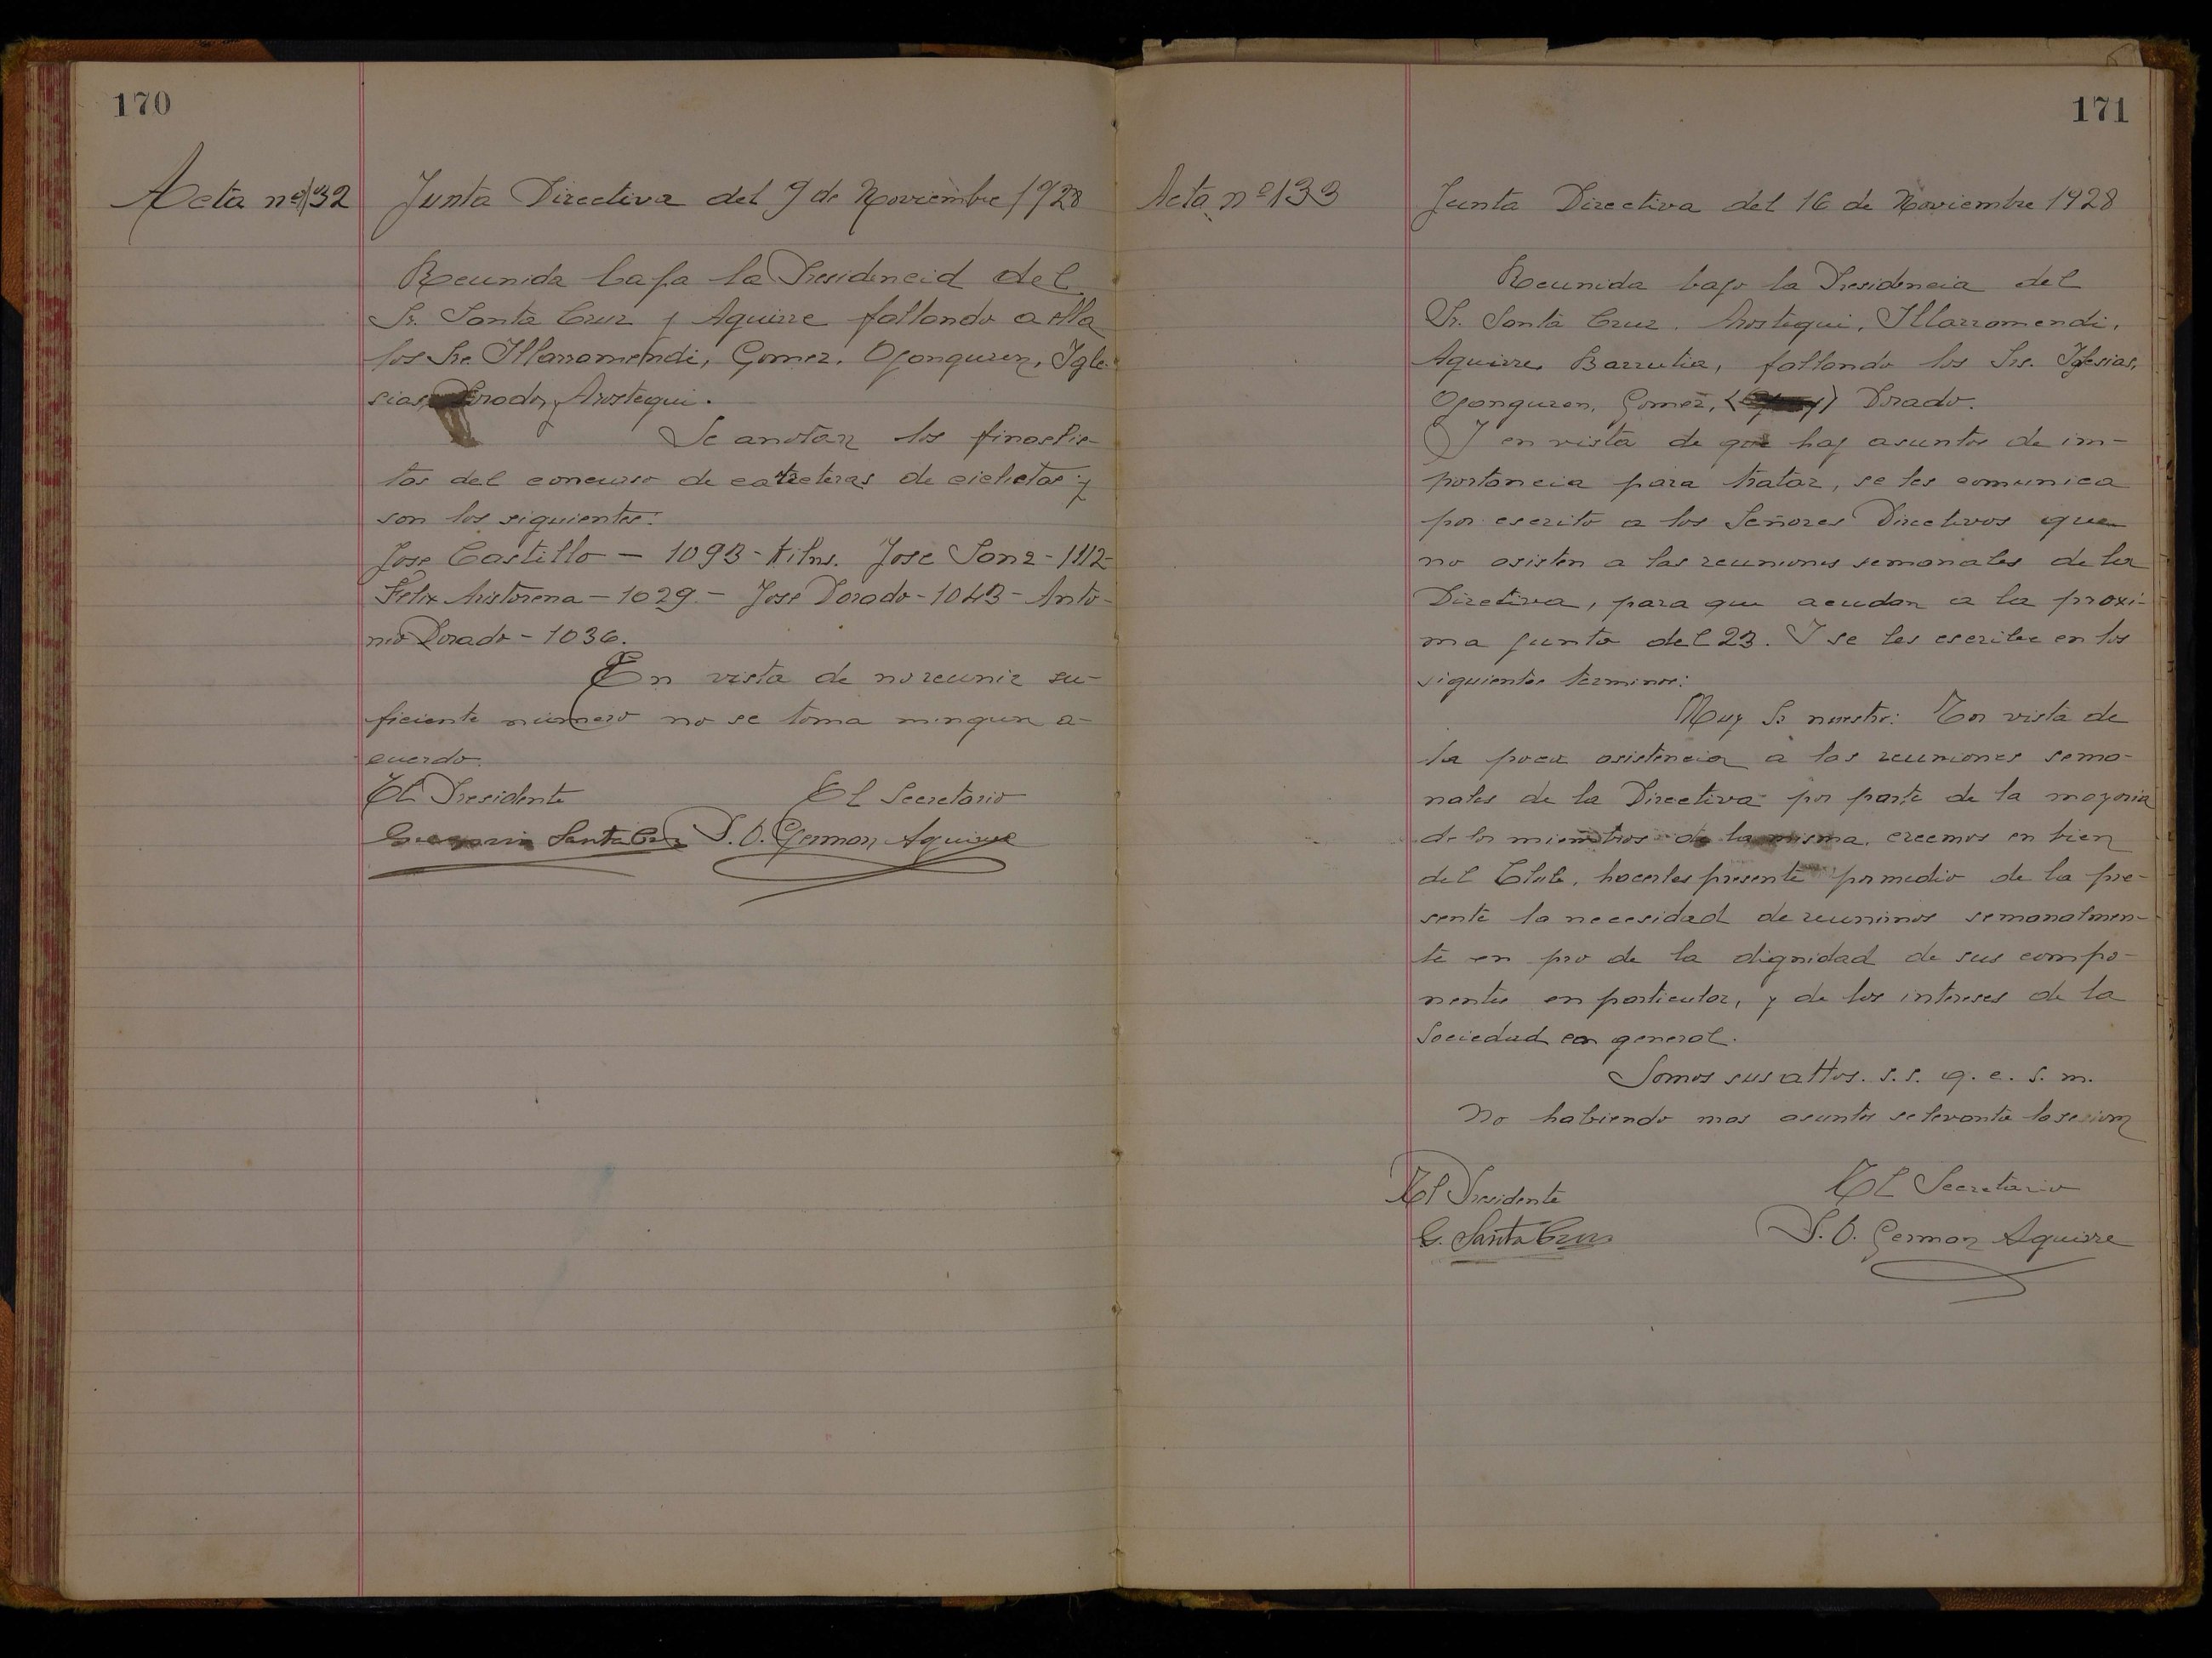 170
Acta nº 132
Junta Directiva del 9 de Noviembre 1928
Reunida bajo la Presidencia del
Sr. Santa Cruz y Aguirre faltando a ella
los Sre. Illarramendi, Gomez, Ojanguren, Igle-
sias, Dorado, y Arostegui.
Se anotan los finalis-
tas del concurso de carreteras de ciclistas y
son los siguientes:
Jose Castillo — 1093 - Kilms. Jose Sanz - 1112 -
Felix Aristorena — 1029 — Jose Dorado - 1043 - Anto-
nio Dorado - 1036.
En vista de no reunir su-
ficiente número no se toma ningun a-
cuerdo.
El Presidente El Secretario
Gregorio Santa Cruz P.O. German Aguirre
171
Acta nº 133
Junta Directiva del 16 de Noviembre 1928
Reunida bajo la Presidencia del
Sr. Santa Cruz, Arostegui, Illarramendi,
Aguirre, Barrutia, faltando los Srs. Iglesias,
Ojanguren, Gomez, Dorado.
Y en vista de que hay asuntos de im-
portancia para tratar, se les comunica
por escrito a los Señores Directivos que
no asisten a las reuniones semanales de la
Directiva, para que acudan a la proxi-
ma junta del 23. Y se les escribe en los
siguientes terminos:
Muy Sr. nuestro: En vista de
la poca asistencia a las reuniones sema-
nales de la Directiva por parte de la mayoria
de los miembros de la misma, creemos en bien
del Club, hacerles presente por medio de la pre-
sente la necesidad de reunirnos semanalmen-
te en pro de la dignidad de sus compo-
nentes en particular, y de los intereses de la
Sociedad en general.
Somos sus attos. s.s. q. e. s. m.
No habiendo mas asuntos se levanta la sesion
El Presidente El Secretario
G. Santa Cruz P.O. German Aguirre